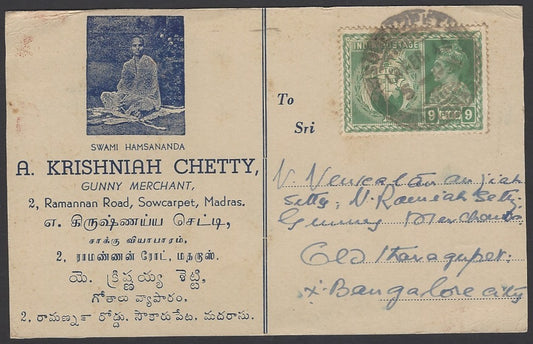 SWAMI HAMSANANDA
A. KRISHNIAH CHETTY,
GUNNY MERCHANT,
2, Ramannan Road, Sowcarpet, Madras.
எ. கிருஷ்ணய்ய செட்டி,
சாக்கு வியாபாரம்,
2, ராமண்ணன் ரோட், மதருஸ்.
యె. క్రిష్ణయ్య శెట్టి,
గోతాలు వ్యాపారం.
2. రామణ్ణన్ రోడ్డు, సౌకారుపేట, మదరాసు.
INDIA POSTAGE
9 9
To
Sri
V. Venkataramaniah
Setty, V. Ramiah Setty
Gunny Merchants
Old Tharagupet
Bangalore City